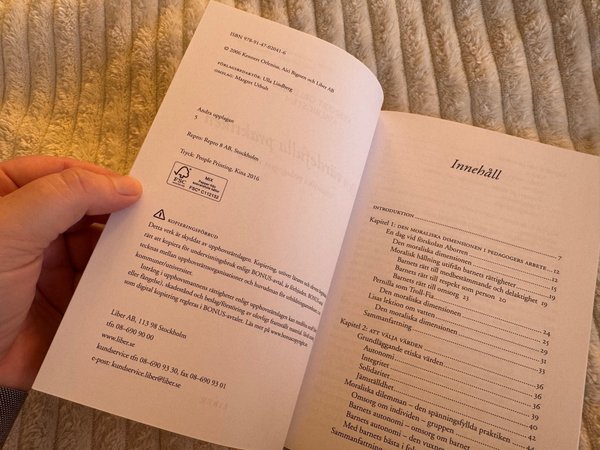 ISBN 978-91-47-02041-6
© 2006 Kennert Orlenius, Airi Bigsten och Liber AB
FÖRLAGSREDAKTÖR: Ulla Lindberg
OMSLAG: Margret
Andra upplagan
5
Repro: Repro 8 AB, Stockholm
Tryck: People Printing, Kina 2016
FSC
MIX
FSC® C112152
KOPIERINGSFÖRBUD
Detta verk är skyddat av upphovsrättslagen. Kopiering, utöver lärares
rätt att kopiera för undervisningsbruk enligt BONUS-avtal, är förbjuden.
tecknas mellan upphovsrättsorganisationer och huvudman för
kommuner/universitet.
Intrång i upphovsmannens rättigheter enligt upphovsrättslagen kan medföra straff
eller fängelse), skadestånd och beslag/förstöring av olovligt framställt material.
som digital kopiering regleras i BONUS-avtalet. Läs mer på
Liber AB, 113 98 Stockholm
tfn 08-690 90 00
www.liber.se
kundservice tfn 08-690 93 30, fax 08-690 93 01
e-post: kundservice.liber@liber.se
Innehåll
INTRODUKTION 7
Kapitel 1: DEN MORALISKA DIMENSIONEN I PEDAGOGERS ARBETE 12
En dag vid förskolan Aborren
Den moraliska dimensionen
Moralisk hållning utifrån barnets rättigheter
Barnets rätt till medbestämmande och delaktighet 19
Barnets rätt till respekt som person 20
Barnets rätt till omsorg 23
Pernilla som Troll-Fia 24
Den moraliska dimensionen 25
Lisas lektion om vatten 29
Den moraliska dimensionen 31
Sammanfattning 33
Kapitel 2: ATT VÄLJA VÄRDEN
Grundläggande etiska värden 36
Autonomi 36
Integritet
Solidaritet
Jämställdhet
Moraliska dilemman – den spänningsfyllda praktiken
Omsorg om individen – gruppen
Barnets autonomi – omsorg om barnet
Barnets autonomi – den vuxnes
Med barnets bästa i
Sammanfattning